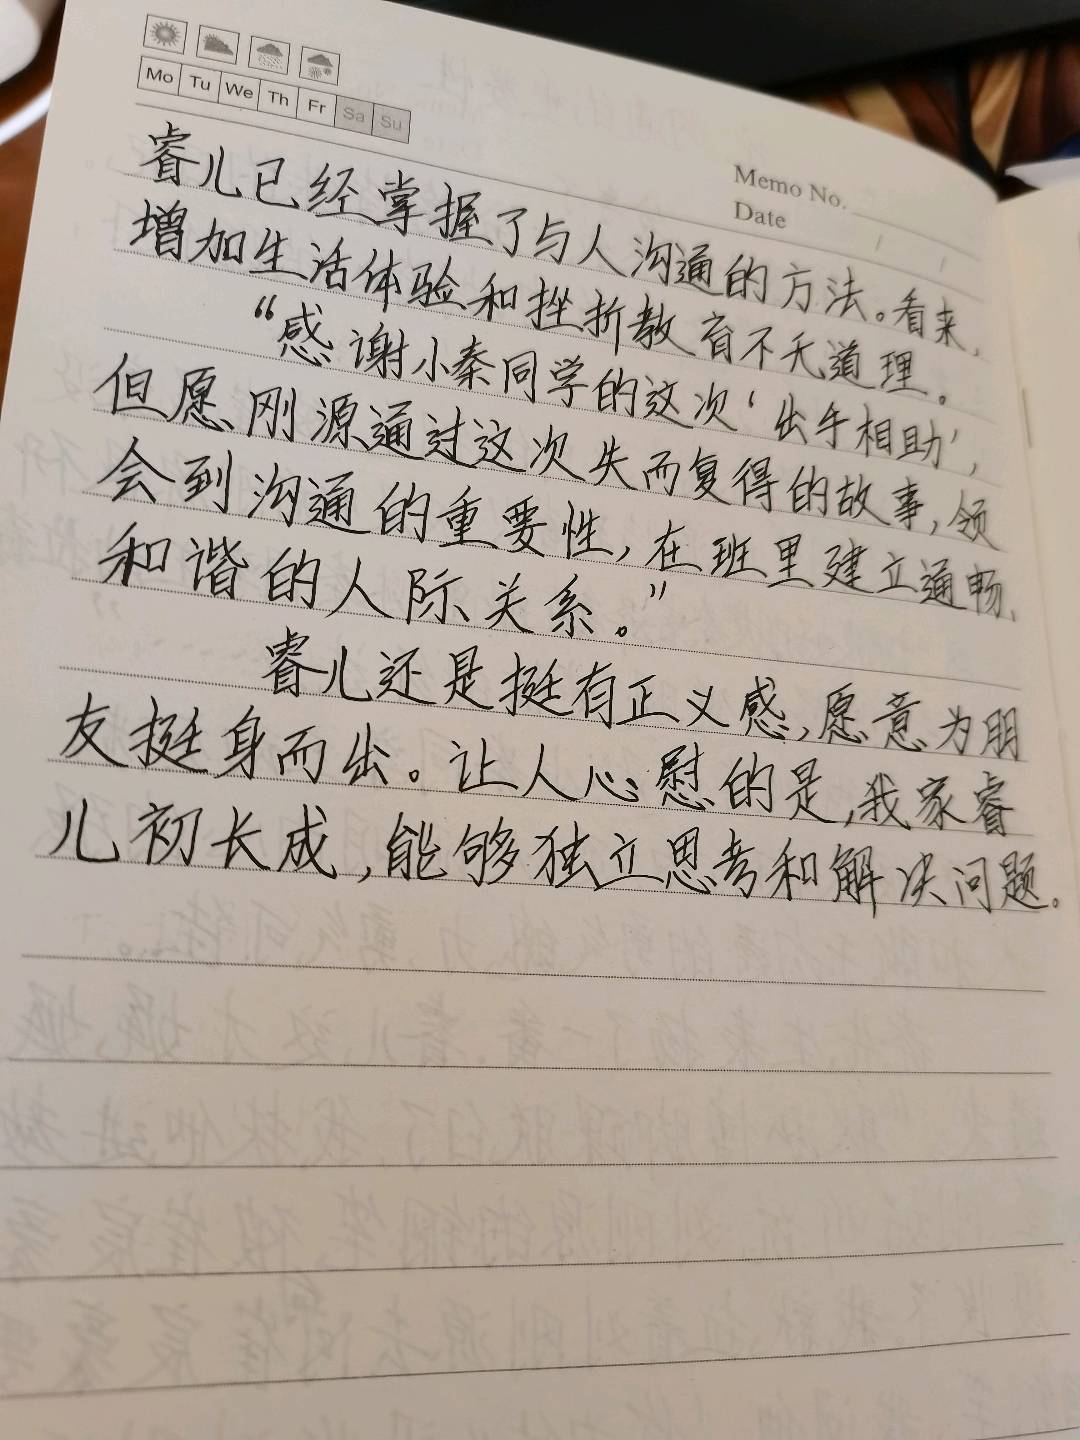 Mo Tu We Th Fr Sa Su
Memo No.
Date
睿儿已经掌握了与人沟通的方法。看来,
增加生活体验和挫折教育不无道理。
“感谢小秦同学的这次‘出手相助’,
但愿刚源通过这次失而复得的故事,领
会到沟通的重要性,在班里建立通畅、
和谐的人际关系。”
睿儿还是挺有正义感,愿意为朋
友挺身而出。让人心慰的是,我家睿
儿初长成,能够独立思考和解决问题。